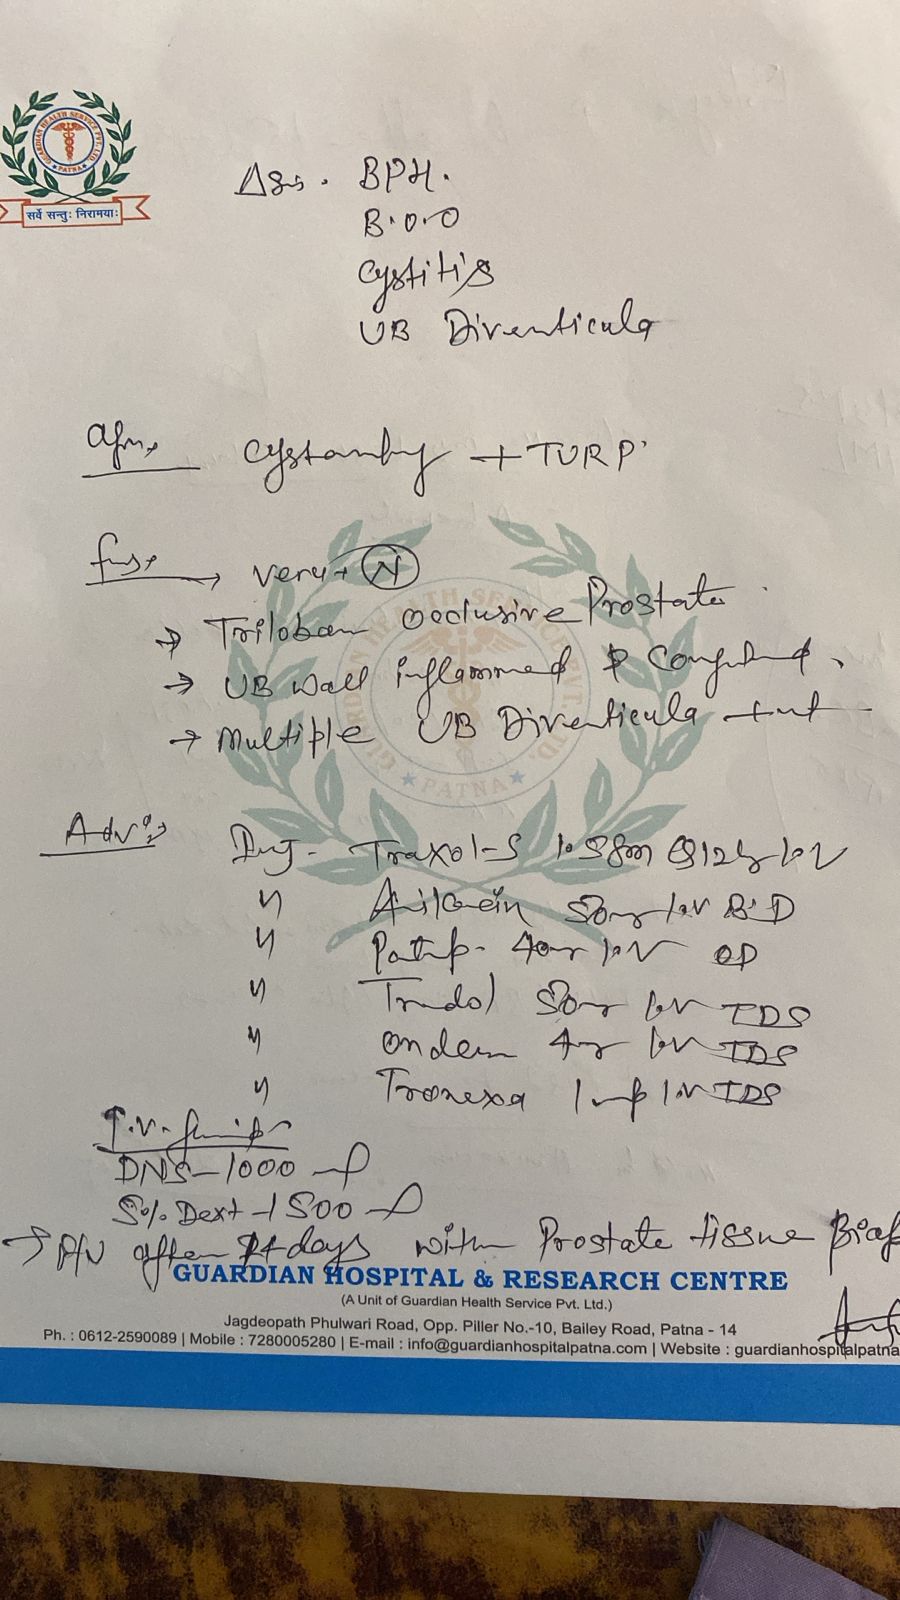 सर्वे सन्तु: निरामयाः
GUARDIAN HEALTH SERVICE PVT. LTD.
PATNA
BPH.
B.O.O
Cystitis
UB Diverticula
+ TURP
Veru → N
→ Trilobar occlusive Prostate
→ UB Wall inflammed & .
→ Multiple UB Diverticula +nt
Adv:
Inj - Traxol-S 1.5gm Q12h I.V
" 500mg I.V B.D
" 40mg I.V OD
" 50mg I.V TDS
" 4mg I.V TDS
" Tranexa 1 I.V TDS
I.V.
DNS - 1000
5% Dext - 1500
→ R/V after days with Prostate tissue
GUARDIAN HOSPITAL & RESEARCH CENTRE
(A Unit of Guardian Health Service Pvt. Ltd.)
Jagdeopath Phulwari Road, Opp. Piller No.-10, Bailey Road, Patna - 14
Ph. : 0612-2590089 | Mobile : 7280005280 | E-mail : info@guardianhospitalpatna.com | Website : guardianhospitalpatna